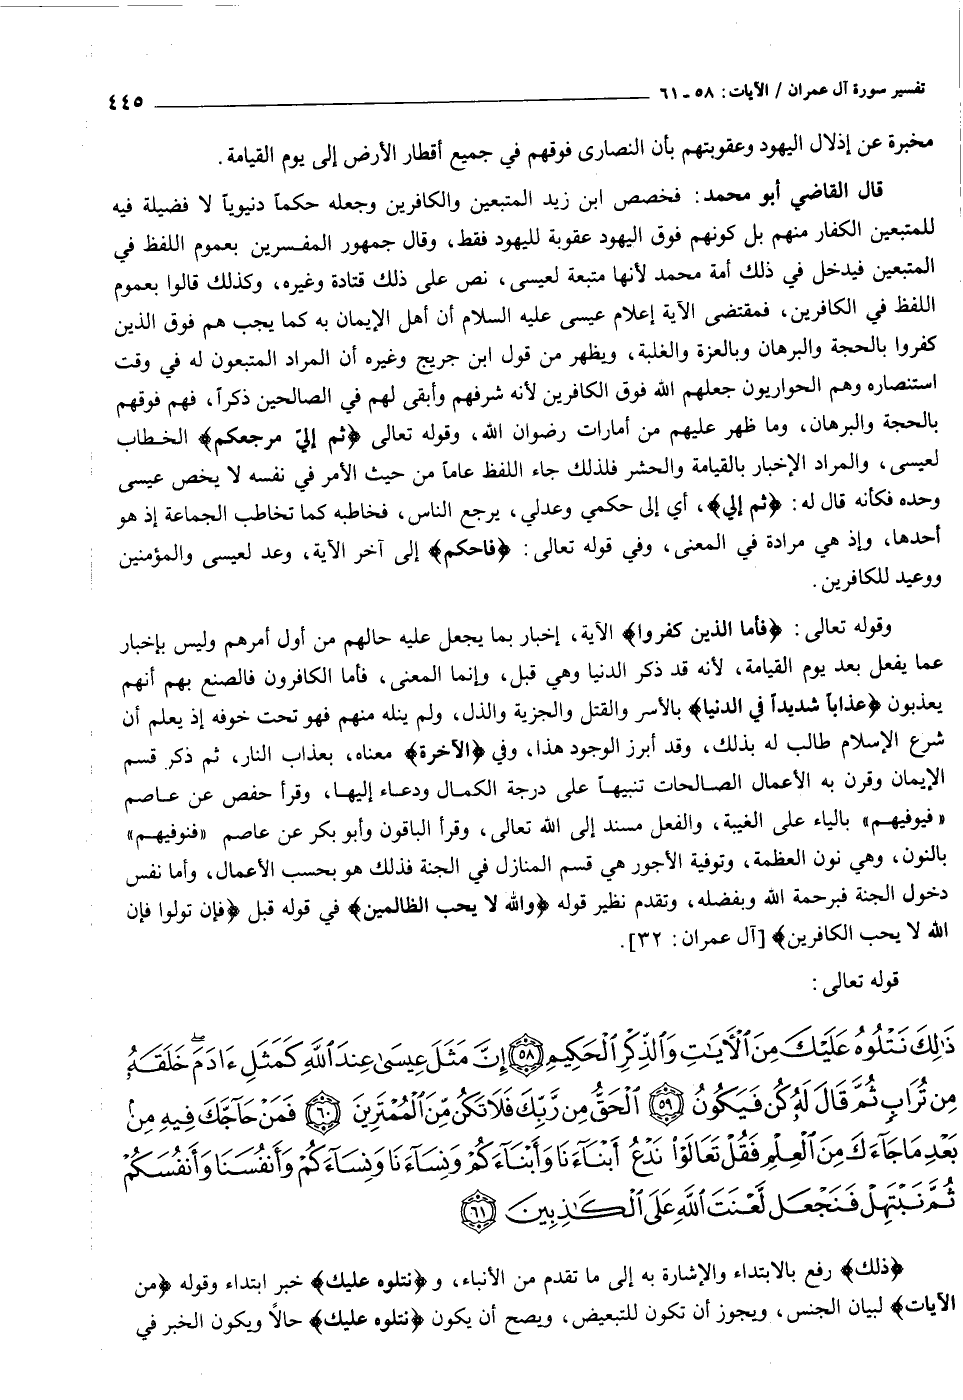 تفسير سورة آل عمران / الآيات: ٥٨ - ٦١ ٤٤٥
مخبرة عن إذلال اليهود وعقوبتهم بأن النصارى فوقهم في جميع أقطار الأرض إلى يوم القيامة.
قال القاضي أبو محمد: فخصص ابن زيد المتبعين والكافرين وجعله حكماً دنيوياً لا فضيلة فيه
للمتبعين الكفار منهم بل كونهم فوق اليهود عقوبة لليهود فقط، وقال جمهور المفسرين بعموم اللفظ في
المتبعين فيدخل في ذلك أمة محمد لأنها متبعة لعيسى، نص على ذلك قتادة وغيره، وكذلك قالوا بعموم
اللفظ في الكافرين، فمقتضى الآية إعلام عيسى عليه السلام أن أهل الإيمان به كما يجب هم فوق الذين
كفروا بالحجة والبرهان وبالعزة والغلبة، ويظهر من قول ابن جريج وغيره أن المراد المتبعون له في وقت
استنصاره وهم الحواريون جعلهم الله فوق الكافرين لأنه شرفهم وأبقى لهم في الصالحين ذكراً، فهم فوقهم
بالحجة والبرهان، وما ظهر عليهم من أمارات رضوان الله، وقوله تعالى ﴿ثم إليّ مرجعكم﴾ الخطاب
لعيسى، والمراد الإخبار بالقيامة والحشر فلذلك جاء اللفظ عاماً من حيث الأمر في نفسه لا يخص عيسى
وحده فكأنه قال له: ﴿ثم إلي﴾، أي إلى حكمي وعدلي، يرجع الناس، فخاطبه كما تخاطب الجماعة إذ هو
أحدها، وإذ هي مرادة في المعنى، وفي قوله تعالى: ﴿فاحكم﴾ إلى آخر الآية، وعد لعيسى والمؤمنين
ووعيد للكافرين.
وقوله تعالى: ﴿فأما الذين كفروا﴾ الآية، إخبار بما يجعل عليه حالهم من أول أمرهم وليس بإخبار
عما يفعل بعد يوم القيامة، لأنه قد ذكر الدنيا وهي قبل، وإنما المعنى، فأما الكافرون فالصنع بهم أنهم
يعذبون ﴿عذاباً شديداً في الدنيا﴾ بالأسر والقتل والجزية والذل، ولم ينله منهم فهو تحت خوفه إذ يعلم أن
شرع الإسلام طالب له بذلك، وقد أبرز الوجود هذا، وفي ﴿الآخرة﴾ معناه، بعذاب النار، ثم ذكر قسم
الإيمان وقرن به الأعمال الصالحات تنبيهاً على درجة الكمال ودعاء إليها، وقرأ حفص عن عاصم
«فيوفيهم» بالياء على الغيبة، والفعل مسند إلى الله تعالى، وقرأ الباقون وأبو بكر عن عاصم «فنوفيهم»
بالنون، وهي نون العظمة، وتوفية الأجور هي قسم المنازل في الجنة فذلك هو بحسب الأعمال، وأما نفس
دخول الجنة فبرحمة الله وبفضله، وتقدم نظير قوله ﴿والله لا يحب الظالمين﴾ في قوله قبل ﴿فإن تولوا فإن
الله لا يحب الكافرين﴾ [آل عمران: ٣٢].
قوله تعالى:
ذَٰلِكَ نَتْلُوهُ عَلَيْكَ مِنَ ٱلْآيَٰتِ وَٱلذِّكْرِ ٱلْحَكِيمِ ٥٨ إِنَّ مَثَلَ عِيسَىٰ عِندَ ٱللَّهِ كَمَثَلِ ءَادَمَ ۖ خَلَقَهُۥ
مِن تُرَابٍ ثُمَّ قَالَ لَهُۥ كُن فَيَكُونُ ٥٩ ٱلْحَقُّ مِن رَّبِّكَ فَلَا تَكُن مِّنَ ٱلْمُمْتَرِينَ ٦٠ فَمَنْ حَآجَّكَ فِيهِ مِنۢ
بَعْدِ مَا جَآءَكَ مِنَ ٱلْعِلْمِ فَقُلْ تَعَالَوْا۟ نَدْعُ أَبْنَآءَنَا وَأَبْنَآءَكُمْ وَنِسَآءَنَا وَنِسَآءَكُمْ وَأَنفُسَنَا وَأَنفُسَكُمْ
ثُمَّ نَبْتَهِلْ فَنَجْعَل لَّعْنَتَ ٱللَّهِ عَلَى ٱلْكَٰذِبِينَ ٦١
﴿ذلك﴾ رفع بالابتداء والإشارة به إلى ما تقدم من الأنباء، و ﴿نتلوه عليك﴾ خبر ابتداء وقوله ﴿من
الآيات﴾ لبيان الجنس، ويجوز أن تكون للتبعيض، ويصح أن يكون ﴿نتلوه عليك﴾ حالاً ويكون الخبر في